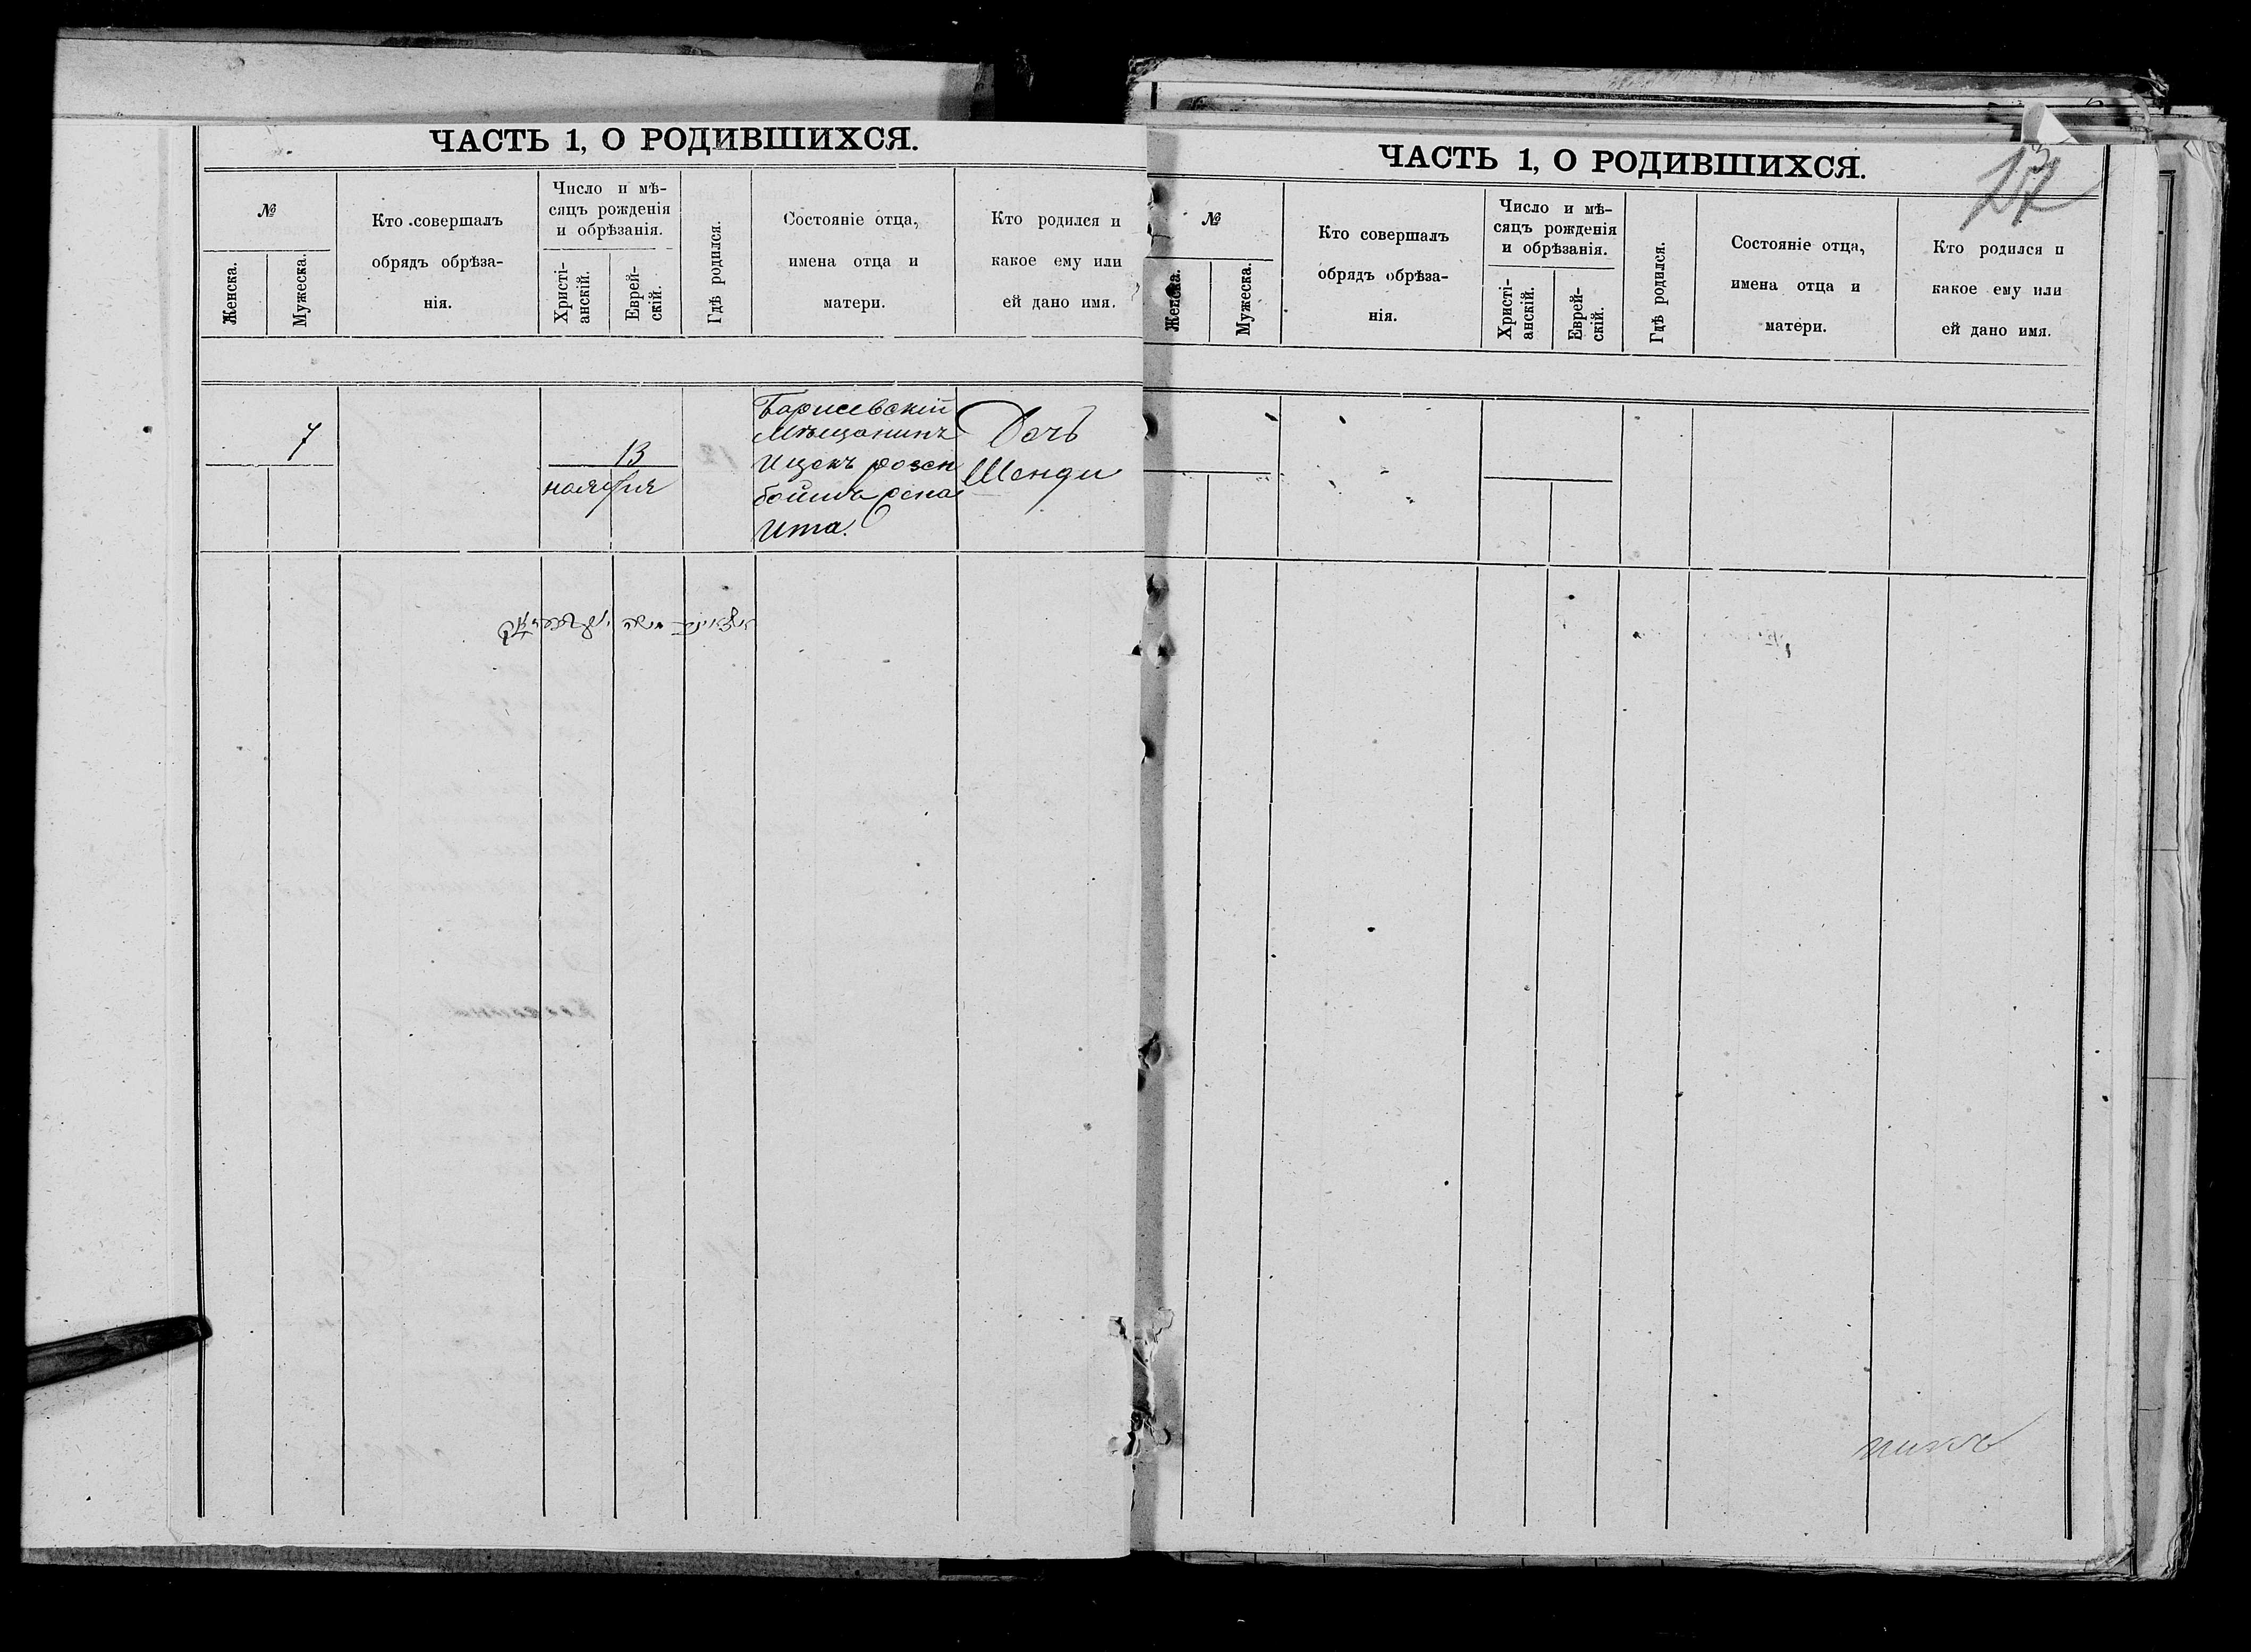 ЧАСТЬ 1, О РОДИВШИХСЯ.
№
Женска.
Мужеска.
Кто совершалъ
обрядъ обрѣза-
нія.
Число и мѣ-
сяцъ рожденія
и обрѣзанія.
Христі-
анскій.
Еврей-
скій.
Гдѣ родился.
Состояніе отца,
имена отца и
матери.
Кто родился и
какое ему или
ей дано имя.
7
13
ноября
Борисевскій
Мѣщанинъ
Ицекъ розен
жена
Ита.
Дочь
Шенди
ЧАСТЬ 1, О РОДИВШИХСЯ.
№
Женска.
Мужеска.
Кто совершалъ
обрядъ обрѣза-
нія.
Число и мѣ-
сяцъ рожденія
и обрѣзанія.
Христі-
анскій.
Еврей-
скій.
Гдѣ родился.
Состояніе отца,
имена отца и
матери.
Кто родился и
какое ему или
ей дано имя.